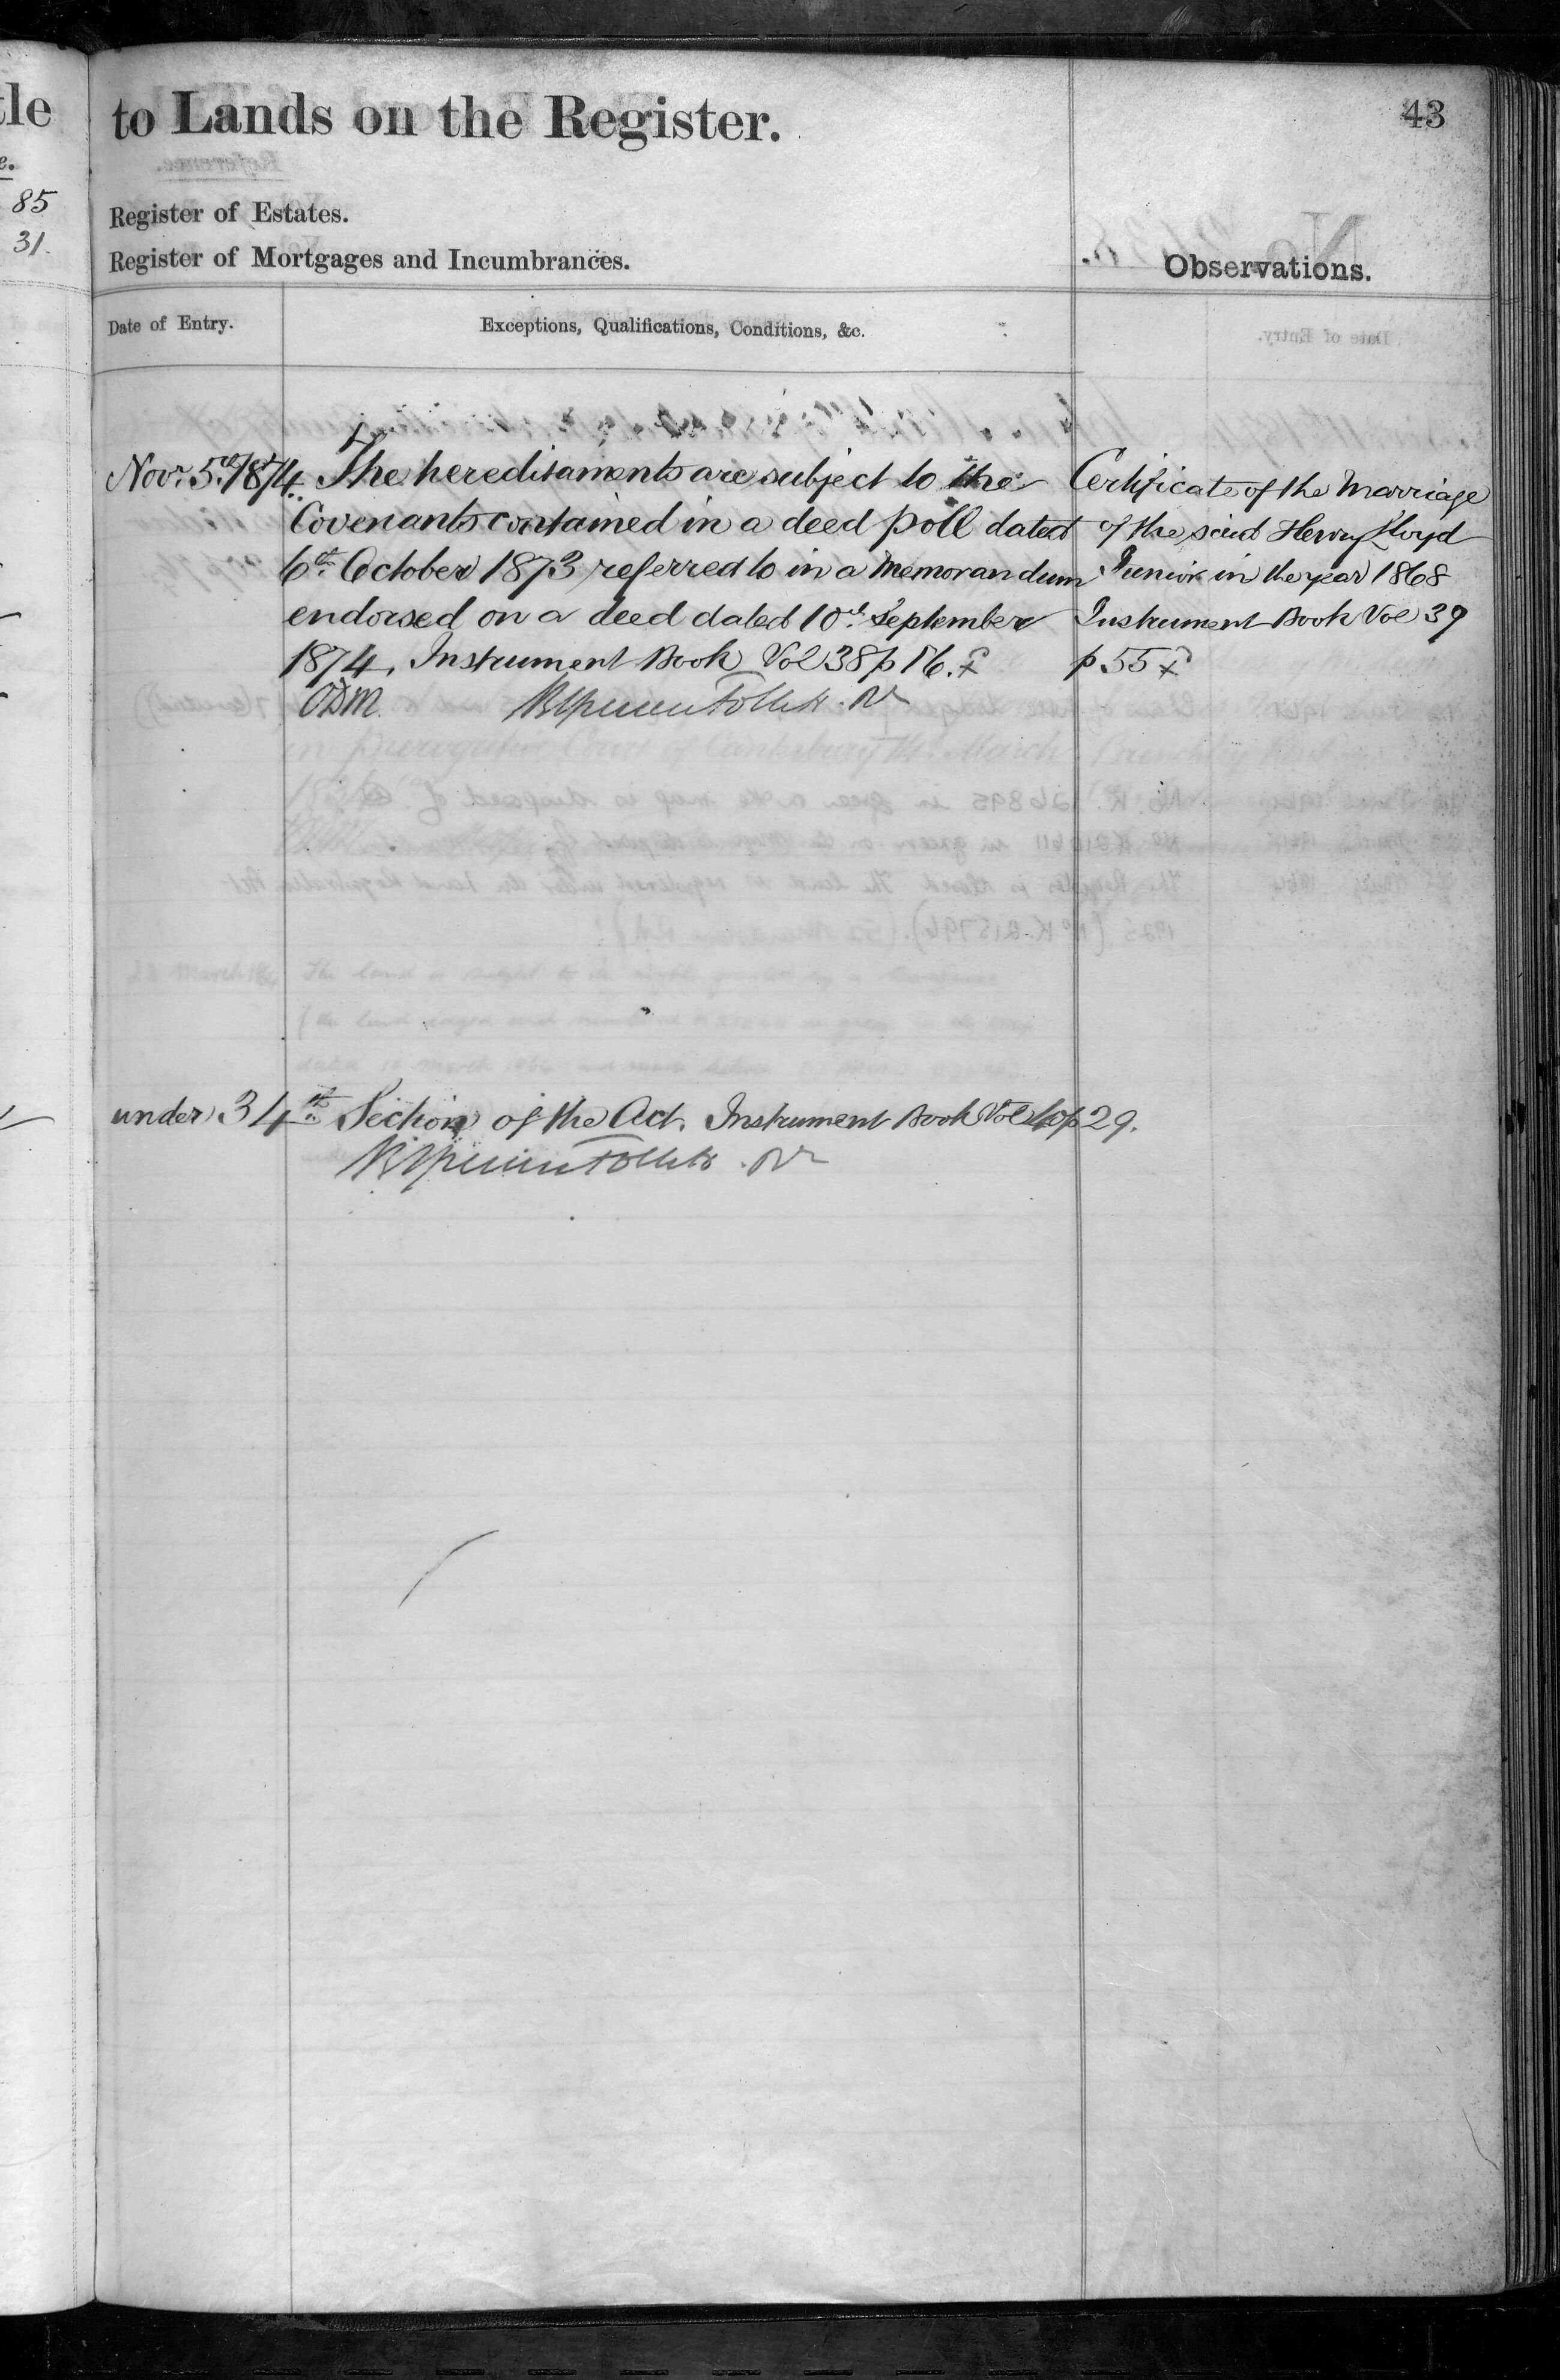 tle
e.
85
31.
to Lands on the Register.
43
Register of Estates.
Register of Mortgages and Incumbrances.
Observations.
Date of Entry.
Exceptions, Qualifications, Conditions, &c.
Novr. 5th 1874. The hereditaments are subject to the
Covenants contained in a deed poll dated
6th October 1873 referred to in a Memorandum
endorsed on a deed dated 10th September
1874. Instrument Book Vol 38 p 16.
Certificate of the Marriage
of the said Henry Lloyd
Junior in the year 1868
Instrument Book Vol 39
p 55
under 34th Section of the Act. Instrument Book Vol 40 p 29.